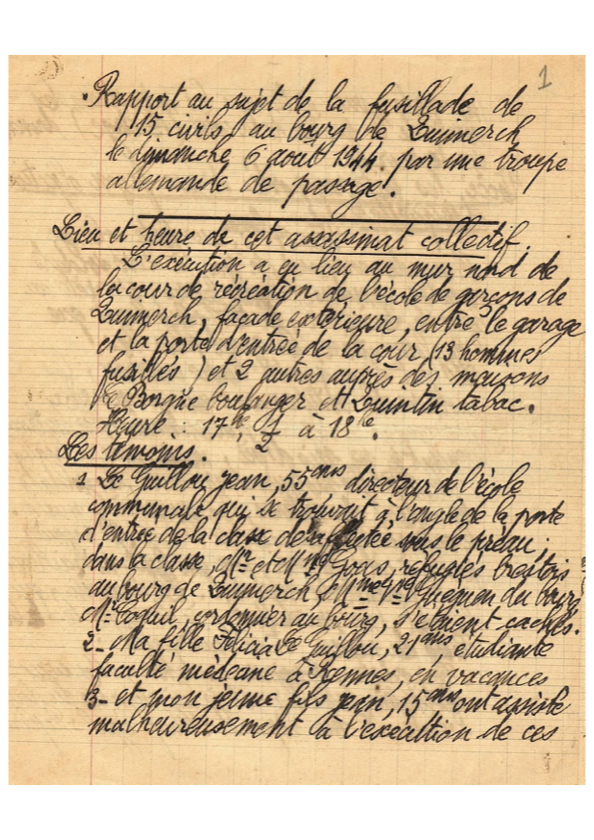 1
Rapport au sujet de la fusillade de
15 civils au bourg de Quimerch
le dimanche 6 août 1944 par une troupe
allemande de passage.
Lieu et heure de cet assassinat collectif.
L'exécution a eu lieu au mur nord de
la cour de récréation de l'école de garçons de
Quimerch, façade extérieure, entre le garage
et la porte d'entrée de la cour (13 hommes
fusillés) et 2 autres auprès des maisons
Le Borgne boulanger et Quintin tabac.
Heure : 17h 1/2 à 18h.
Les témoins.
1 Le Guillou Jean, 55 ans directeur de l'école
communale qui se trouvait à l'angle de la porte
d'entrée de la classe désaffectée sous le préau ;
dans la classe, Mr et Mme Goas, réfugiés brestois
au bourg de Quimerch, Mme Vve Guéguen du bourg
Mr Coquil, cordonnier au bourg, s'étaient cachés.
2- Ma fille Félicia Le Guillou, 21 ans, étudiante
faculté médecine à Rennes, en vacances
3- et mon jeune fils Jean, 15 ans ont assisté
malheureusement à l'exécution de ces